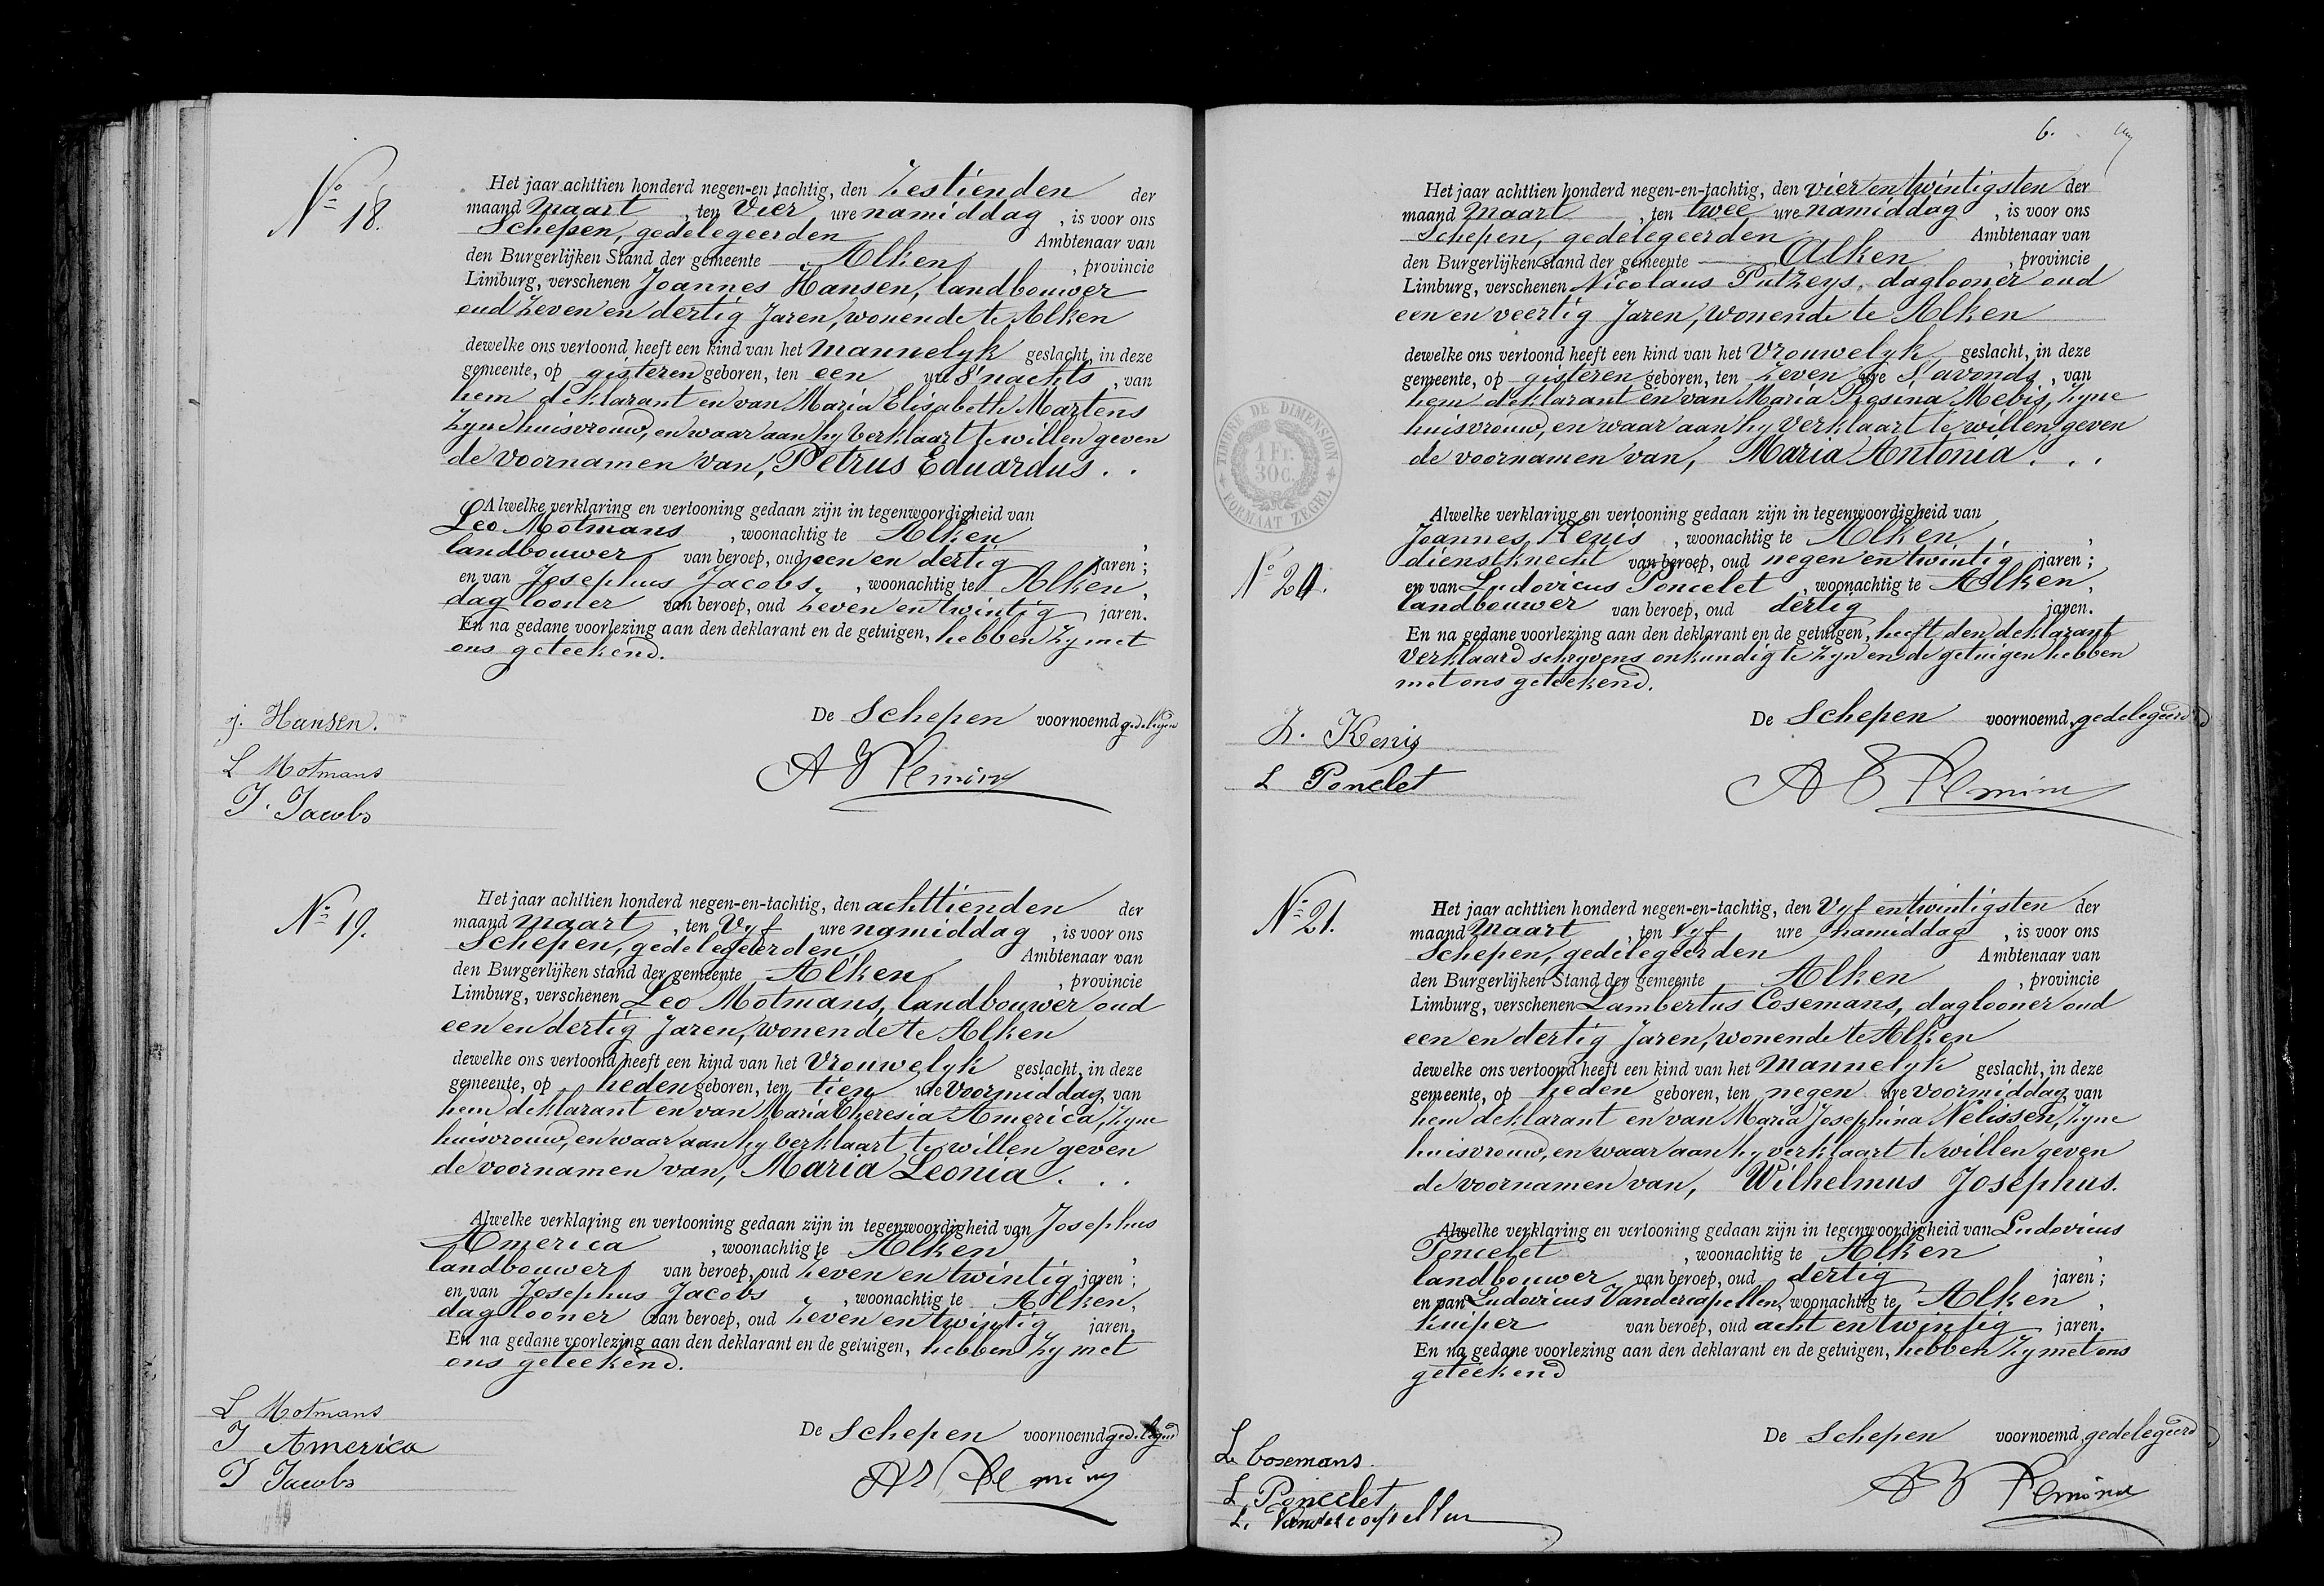 N° 18.
Het jaar achttien honderd negen-en tachtig, den Zestienden der
maand Maart, ten Vier ure namiddag, is voor ons
Schepen, gedelegeerden Ambtenaar van
den Burgerlijken Stand der gemeente Alken, provincie
Limburg, verschenen Joannes Hansen, landbouwer
oud Zeven en dertig Jaren, wonende te Alken
dewelke ons vertoond heeft een kind van het Mannelyk geslacht, in deze
gemeente, op gisteren geboren, ten een ure S'nachts, van
hem deklarant en van Maria Elisabeth Martens
Zyne huisvrouw, en waar aan hy Verklaart te willen geven
de voornamen van, Petrus Eduardus . .
Alwelke verklaring en vertooning gedaan zijn in tegenwoordigheid van
Leo Motmans, woonachtig te Alken,
landbouwer van beroep, oud een en dertig jaren;
en van Josephus Jacobs, woonachtig te Alken,
daglooner van beroep, oud Zeven en twintig jaren.
En na gedane voorlezing aan den deklarant en de getuigen, hebben Zy met
ons geteekend.
De Schepen voornoemd gedelegeerd
j. Hansen.
L Motmans
J. Jacobs
N° 19.
Het jaar achttien honderd negen-en-tachtig, den achttienden der
maand Maart, ten Vyf ure namiddag, is voor ons
Schepen, gedelegeerden Ambtenaar van
den Burgerlijken stand der gemeente Alken, provincie
Limburg, verschenen Leo Motmans, landbouwer oud
een en dertig Jaren, wonende te Alken
dewelke ons vertoond heeft een kind van het Vrouwelyk geslacht, in deze
gemeente, op heden geboren, ten tien ure Voormiddag, van
hem deklarant en van Maria Theresia America, Zyne
huisvrouw, en waar aan hy Verklaart te willen geven
de voornamen van, Maria Leonia . . .
Alwelke verklaring en vertooning gedaan zijn in tegenwoordigheid van Josephus
America, woonachtig te Alken,
landbouwer van beroep, oud Zeven en twintig jaren;
en van Josephus Jacobs, woonachtig te Alken,
daglooner van beroep, oud Zeven en twintig jaren.
En na gedane voorlezing aan den deklarant en de getuigen, hebben Zy met
ons geteekend.
De Schepen voornoemd gedelegeerd
L Motmans
J America
J Jacobs
6.
TIMBRE DE DIMENSION
1 Fr.
30c.
FORMAAT ZEGEL
N° 20.
Het jaar achttien honderd negen-en-tachtig, den vier en twintigsten der
maand Maart, ten twee ure namiddag, is voor ons
Schepen, gedelegeerden Ambtenaar van
den Burgerlijken stand der gemeente Alken, provincie
Limburg, verschenen Nicolaus Putzeys, daglooner oud
een en veertig Jaren, wonende te Alken
dewelke ons vertoond heeft een kind van het Vrouwelyk geslacht, in deze
gemeente, op gisteren geboren, ten Zeven ure S'avonds, van
hem deklarant en van Maria Rosina Mebis, Zyne
huisvrouw, en waar aan hy Verklaart te willen geven
de voornamen van, Maria Antonia . . .
Alwelke verklaring en vertooning gedaan zijn in tegenwoordigheid van
Joannes Kenis, woonachtig te Alken,
dienstknecht van beroep, oud negen en twintig jaren;
en van Ludovicus Poncelet, woonachtig te Alken,
landbouwer van beroep, oud dertig jaren.
En na gedane voorlezing aan den deklarant en de getuigen, heeft den deklarant
Verklaard schryvens onkundig te Zyn en de getuigen hebben
met ons geteekend.
De Schepen voornoemd, gedelegeerd
Kenis
L Ponclet
N° 21.
Het jaar achttien honderd negen-en-tachtig, den Vyf en twintigsten der
maand Maart, ten Vyf ure namiddag, is voor ons
Schepen, gedelegeerden Ambtenaar van
den Burgerlijken Stand der gemeente Alken, provincie
Limburg, verschenen Lambertus Cosemans, daglooner oud
een en dertig Jaren, wonende te Alken
dewelke ons vertoond heeft een kind van het Mannelyk geslacht, in deze
gemeente, op heden geboren, ten negen ure voormiddag, van
hem deklarant en van Maria Josephina Nelissen, Zyne
huisvrouw, en waar aan hy verklaart te willen geven
de voornamen van, Wilhelmus Josephus.
Alwelke verklaring en vertooning gedaan zijn in tegenwoordigheid van Ludovicus
Poncelet, woonachtig te Alken,
landbouwer van beroep, oud dertig jaren;
en van Ludovicus Vandercapellen, woonachtig te Alken,
kuiper van beroep, oud acht en twintig jaren.
En na gedane voorlezing aan den deklarant en de getuigen, hebben Zy met ons
geteekend
De Schepen voornoemd, gedelegeerd
L. Cosemans.
L. Poncelet
L. Vandercapellen